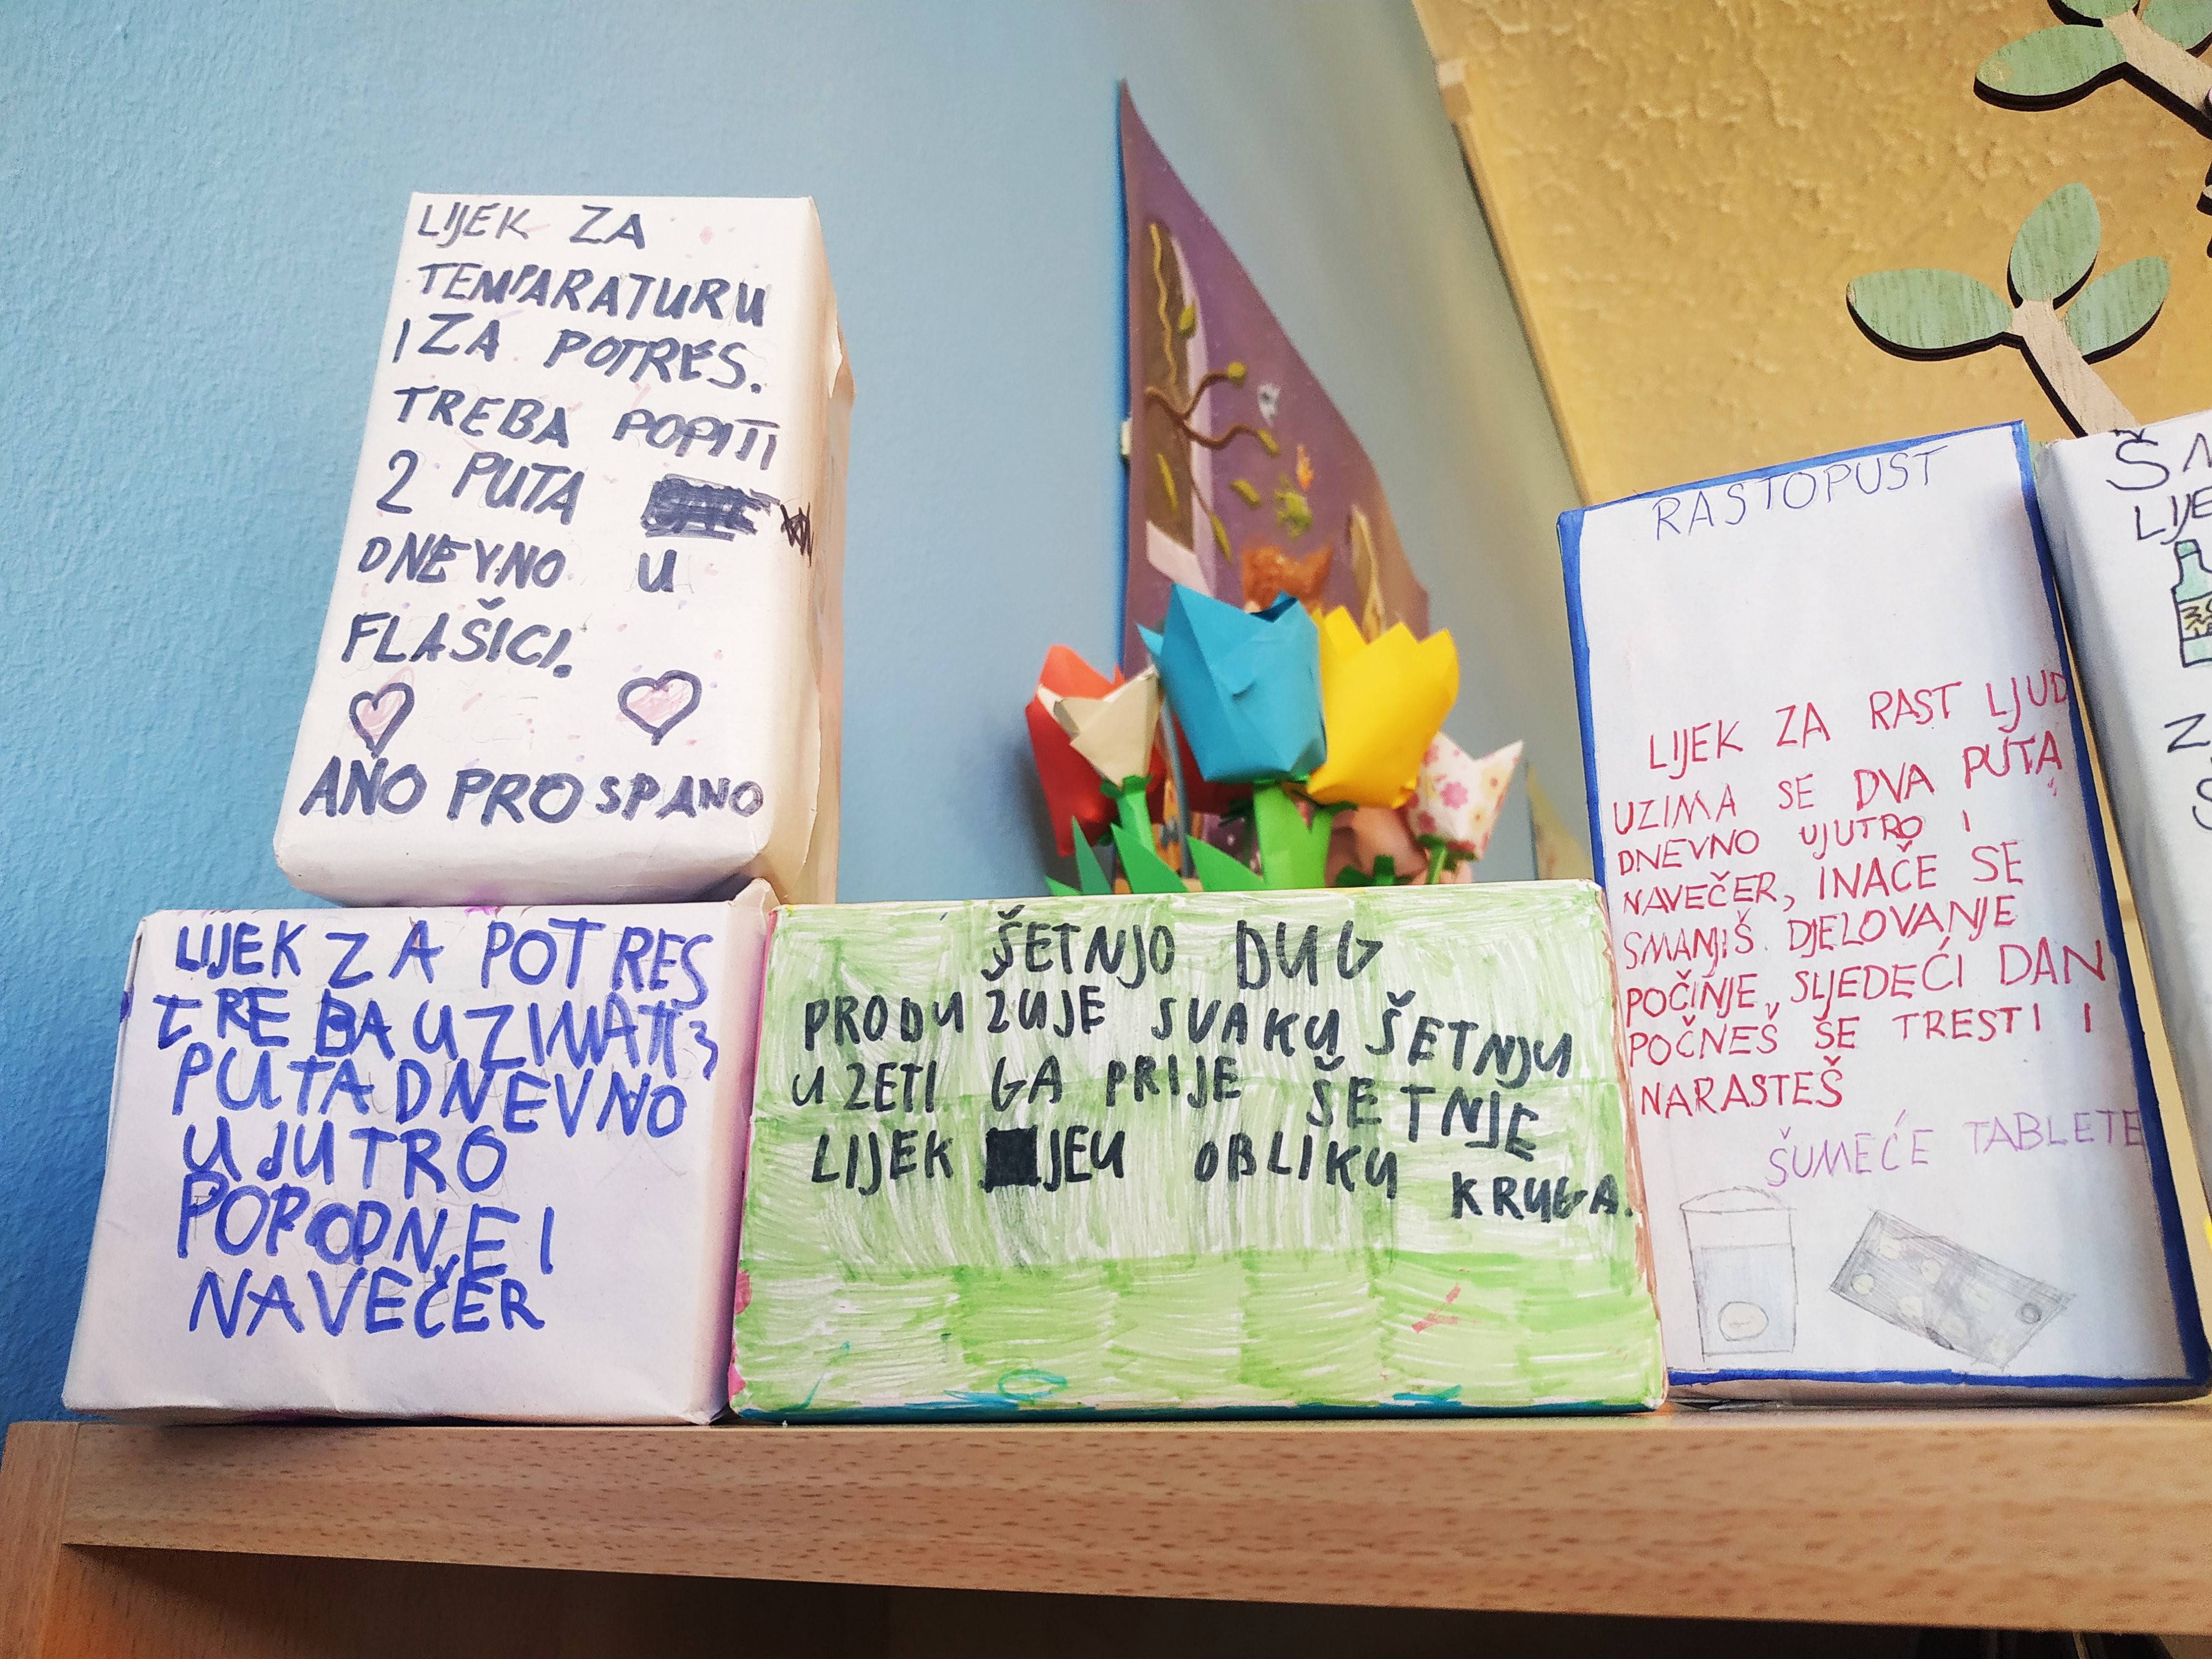 LIJEK ZA
TEMPARATURU
I ZA POTRES.
TREBA POPITI
2 PUTA
DNEVNO U
FLAŠICI.
ANO PROSPANO
LIJEK ZA POTRES
TREBA UZIMATI 3
PUTA DNEVNO
UJUTRO
POPODNE I
NAVEČER
ŠETNJO DUG
PRODUZUJE SVAKU ŠETNJU
UZETI GA PRIJE ŠETNJE
LIJEK JE U OBLIKU KRUGA.
RASTOPUST
LIJEK ZA RAST LJUD
UZIMA SE DVA PUTA
DNEVNO UJUTRO I
NAVEČER, INAČE SE
SMANJIŠ. DJELOVANJE
POČINJE, SLJEDEĆI DAN
POČNEŠ SE TRESTI I
NARASTEŠ
ŠUMEĆE TABLETE